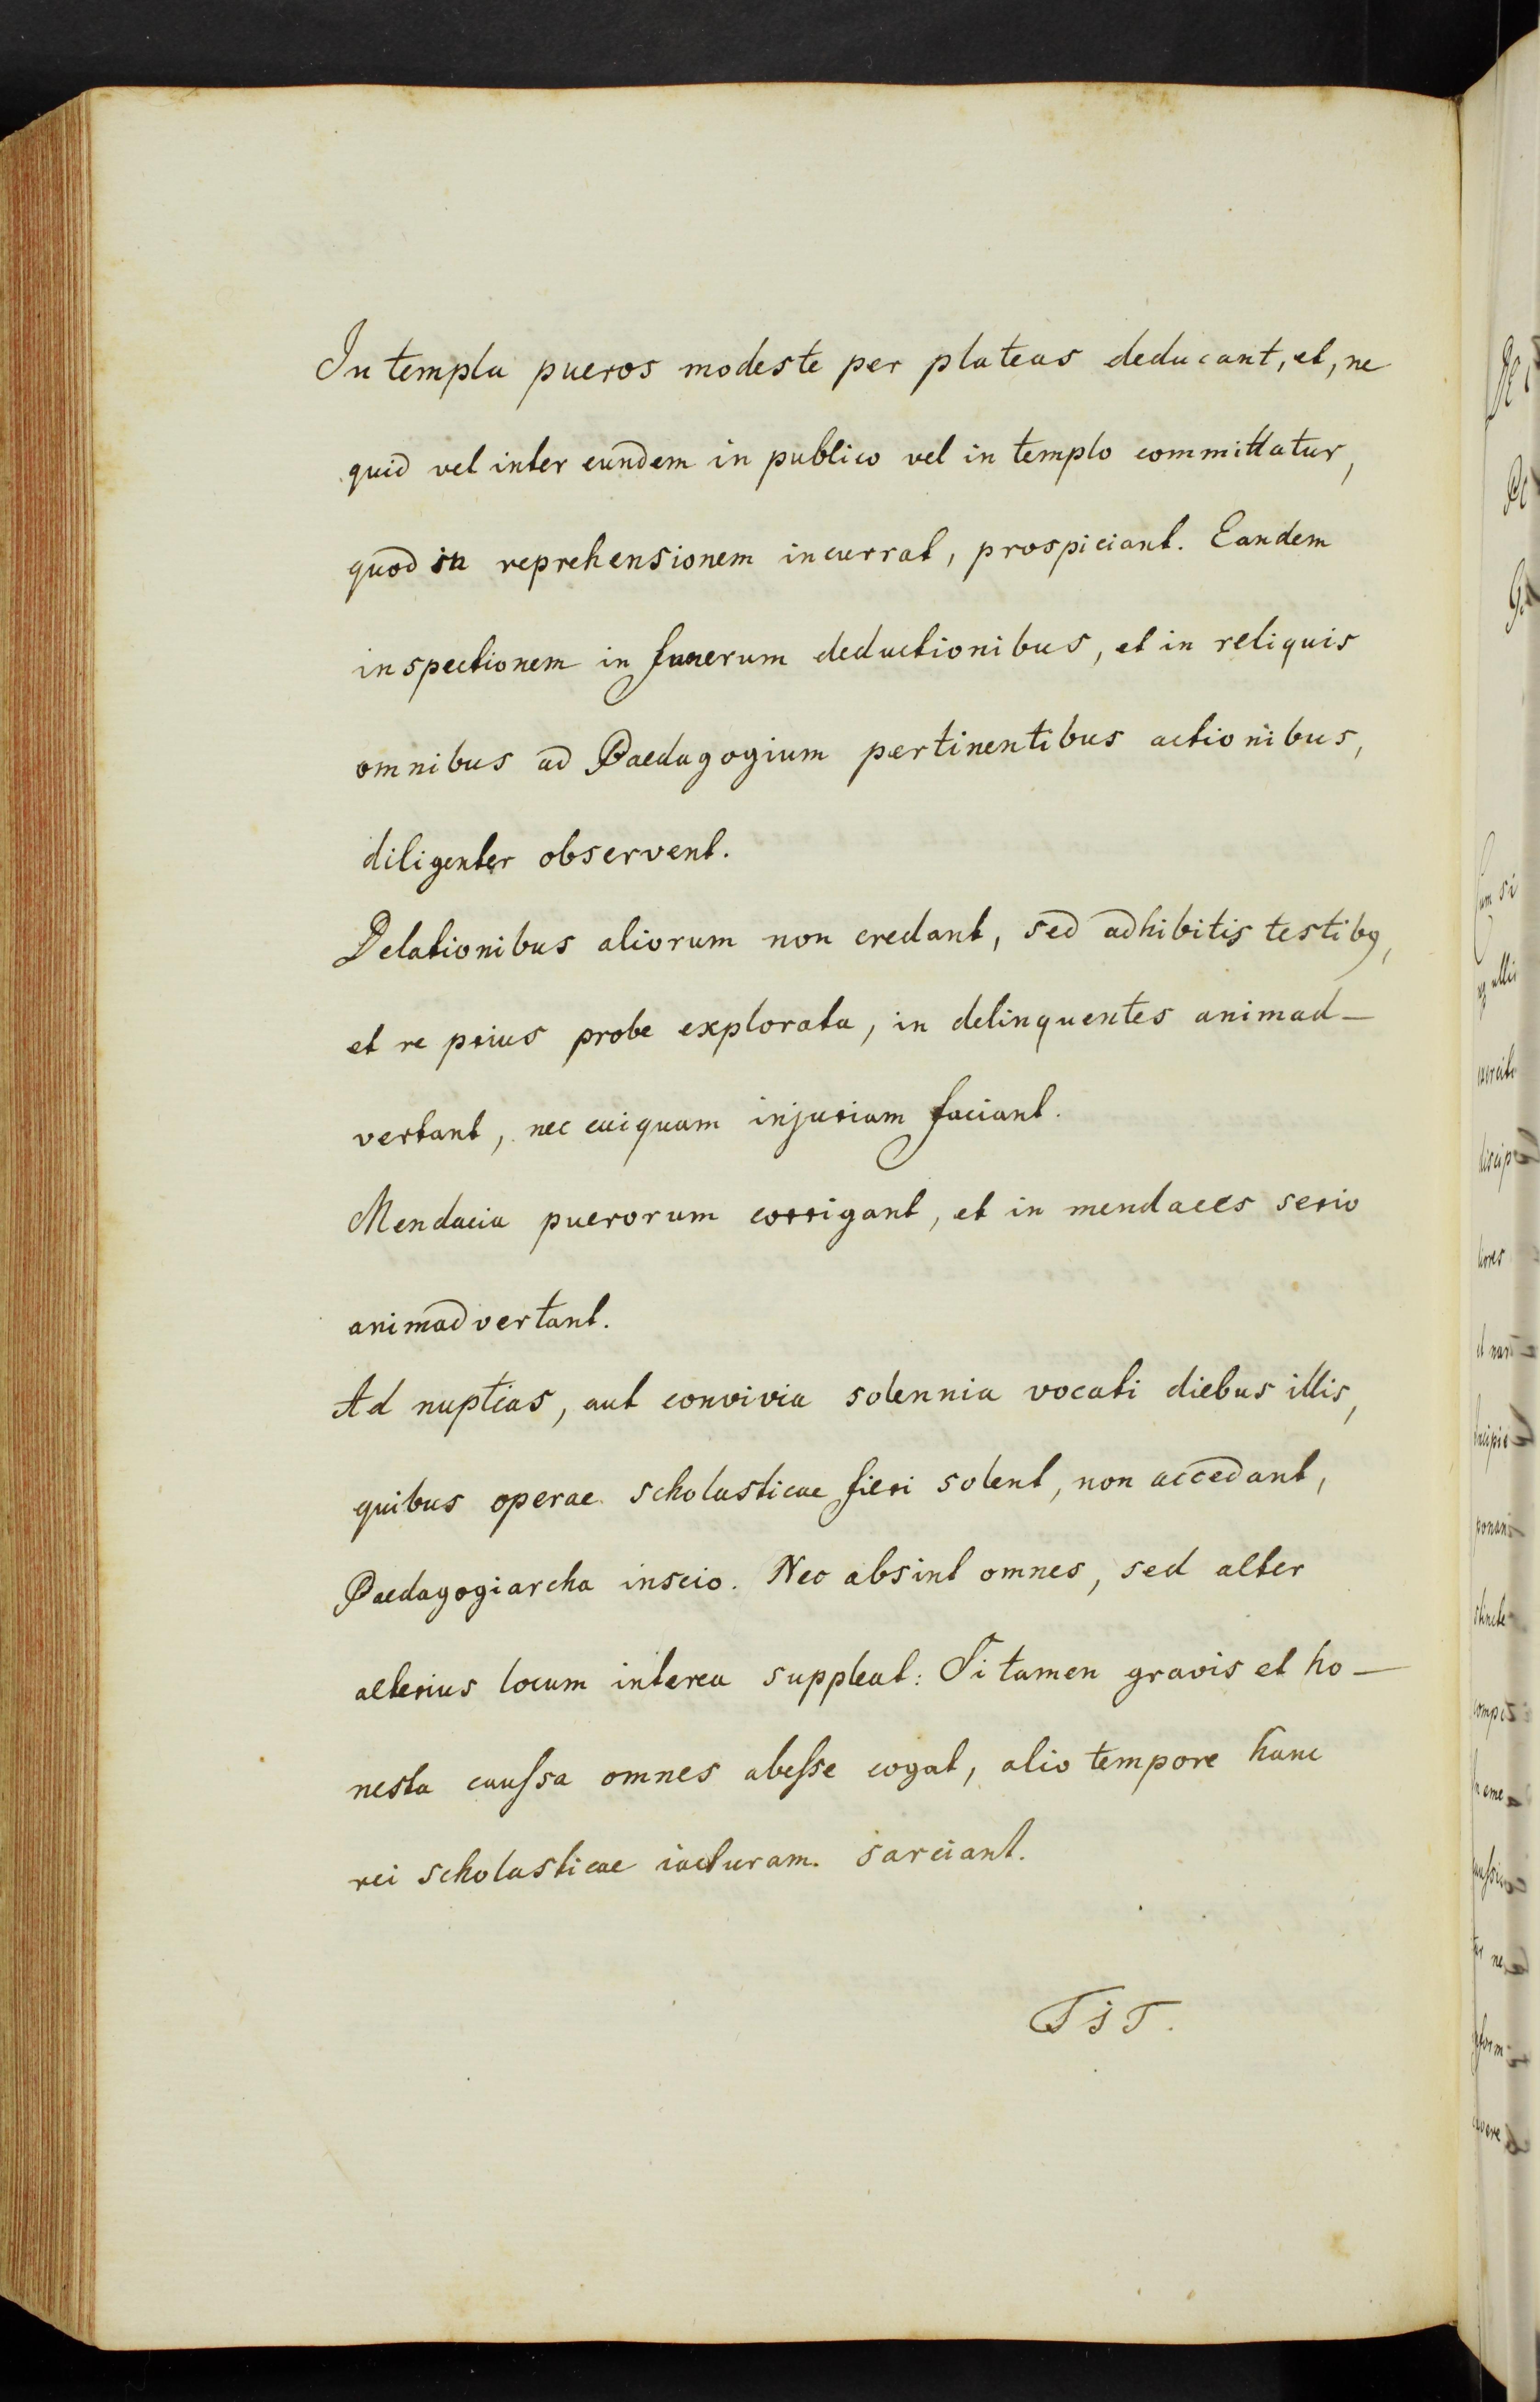 In templa pueros modeste per plateas deducant, et, ne
quid vel inter eundem in publico vel in templo committatur,
quod in reprehensionem incurrat, prospiciant. Eandem
inspectionem in funerum deductionibus, et in reliquis
omnibus ad Paedagogium pertinentibus actionibus,
diligenter observent.
Delationibus aliorum non credant, sed adhibitis testibꝰ,
et re prius probe explorata, in delinquentes animad-
vertant, nec cuiquam injuriam faciant.
Mendacia puerorum corrigant, et in mendaces serio
animadvertant.
Ad nuptias, aut convivia solennia vocati diebus illis,
quibus operae scholasticae fieri solent, non accedant,
Paedagogiarcha inscio. Nec absint omnes, sed alter
alterius locum interea suppleat: Si tamen gravis et ho-
nesta cauſsa omnes abeſse cogat, alio tempore hanc
rei scholasticae iacturam sarciant.
TIT.